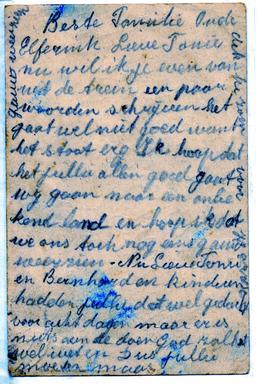 Beste Familie Oude
Elferink Lieve Tonie
nu wil ik je even van
uit de trein een paar
woorden schrijven het
gaat wel niet goed want
het stoot erg Ik hoop dat
het jullie allen goed gaat
wij gaan naar een onbe
kend land en hoop ik dat
we ons toch nog eens gauw
weerzien. Nu Lieve Toni
en Bernhard en kinderen
hadden jullie dat wel gedacht
voor acht dagen maar er is
niets aan de doen God zal het
wel weten Dus jullie
moeten maar
gauw weerzien